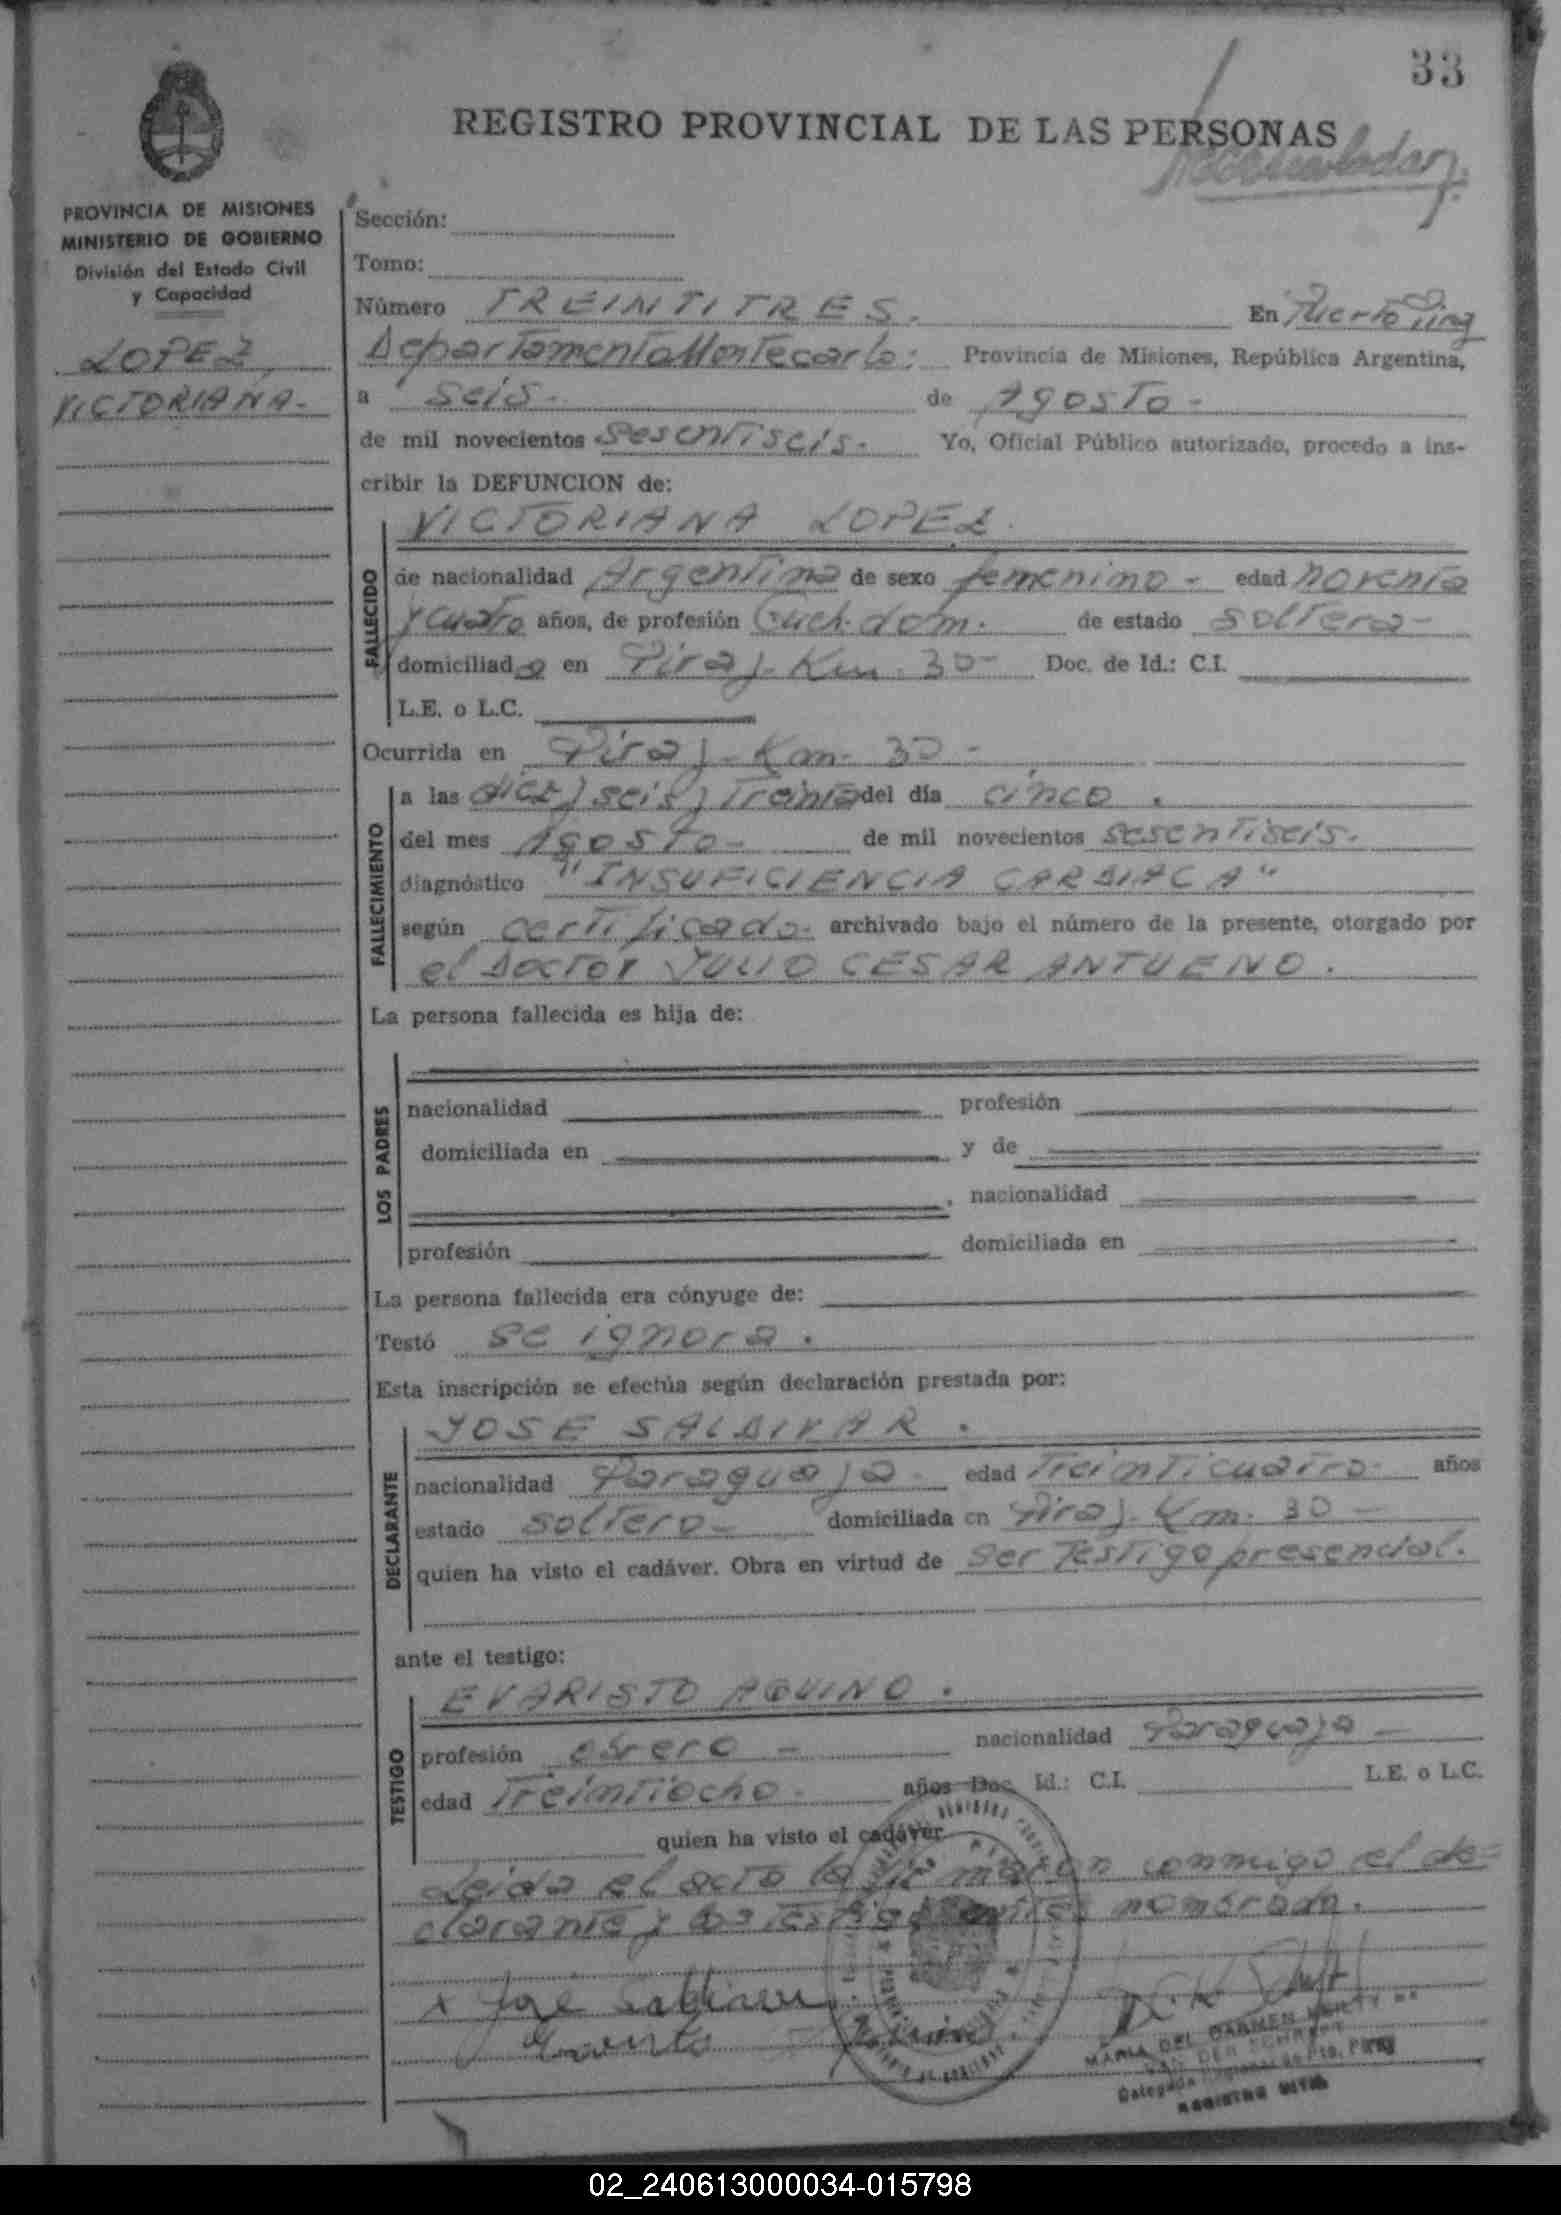 33
REGISTRO PROVINCIAL DE LAS PERSONAS
PROVINCIA DE MISIONES
MINISTERIO DE GOBIERNO
División del Estado Civil
y Capacidad
LOPEZ,
VICTORIANA.-
Sección:
Tomo:
Número TREINTITRES. En Puerto Piray
Departamento Montecarlo; Provincia de Misiones, República Argentina,
a seis.- de Agosto -
de mil novecientos sesentiseis.- Yo, Oficial Público autorizado, procedo a ins-
cribir la DEFUNCION de:
VICTORIANA LOPEZ.
FALLECIDO
de nacionalidad Argentina de sexo femenino - edad noventa
y cuatro años, de profesión Queh. dom. de estado soltera -
domiciliad a en Piray - Km. 30 - Doc. de Id.: C.I.
L.E. o L.C.
Ocurrida en Piray - Km. 30 -
FALLECIMIENTO
a las diez y seis y treinta del día cinco.
del mes Agosto - de mil novecientos sesentiseis.
diagnóstico "INSUFICIENCIA CARDIACA"
según certificado. archivado bajo el número de la presente, otorgado por
el Doctor JULIO CESAR ANTUENO.
La persona fallecida es hija de:
LOS PADRES
nacionalidad profesión
domiciliada en y de
, nacionalidad
profesión domiciliada en
La persona fallecida era cónyuge de:
Testó se ignora.
Esta inscripción se efectúa según declaración prestada por:
DECLARANTE
JOSE SALDIVAR.
nacionalidad Paraguaya - edad treinticuatro - años
estado soltero - domiciliada en Piray - Km. 30 -
quien ha visto el cadáver. Obra en virtud de ser testigo presencial.
ante el testigo:
TESTIGO
EVARISTO AQUINO.
profesión obrero - nacionalidad Paraguaya -
edad treintiocho - años Doc. Id.: C.I. L.E. o L.C.
quien ha visto el cadáver
Leida el acta la firmaron conmigo el de-
clarante y los testigos antes nombrado.
x José Saldivar
Evaristo Aquino
MARIA DEL CARMEN
VAN DER
Delegada Regional de Pto. Piray
02_240613000034-015798